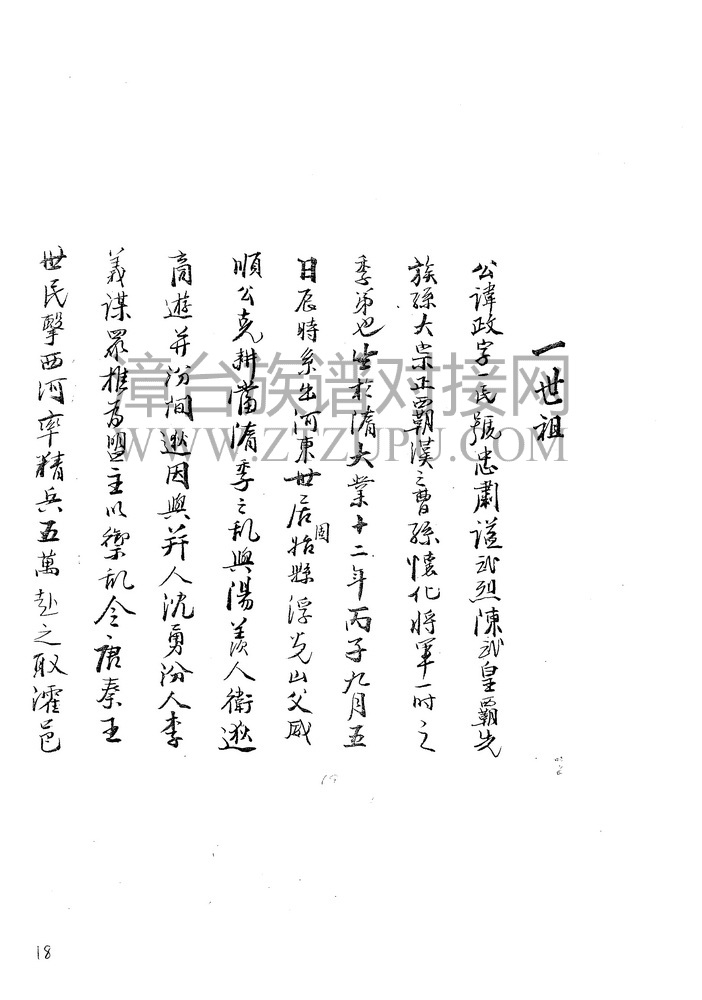 一世祖
公諱政字一民號忠肅謚武烈陳武皇霸先
族孫大宗正西朝漢之曹孫懷化將軍一時之
季弟也生於隋大業十二年丙子九月五
日辰時系出河東世居固始縣浮光山父咸
順公克耕當隋季之乱與湯羡人衛逖
商遊并汾間逖因與并人沈勇汾人李
義謀眾推為盟主以禦乱会唐秦王
世民擊西河率精兵五萬赴之取濩邑
漳台族谱对接网
WWW.ZTZUPU.COM
18